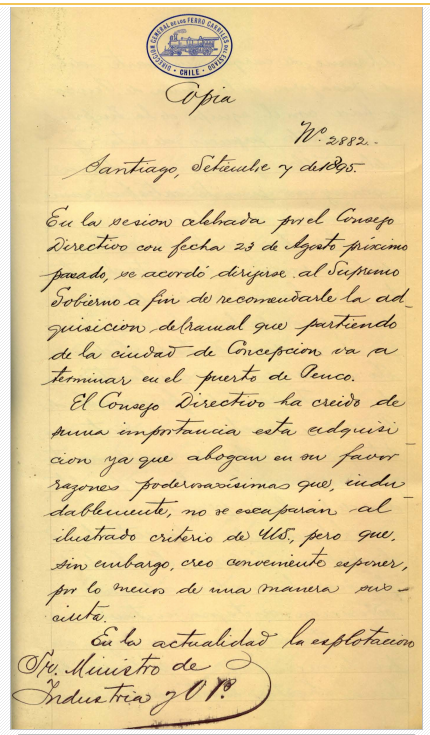 DIRECCION GENERAL DE LOS FERRO CARRILES DEL ESTADO
• CHILE •
Copia
Nº 2882.-
Santiago, Setiembre 7 de 1895.
En la sesion celebrada por el Consejo
Directivo con fecha 23 de Agosto próximo
pasado, se acordó dirijirse al Supremo
Gobierno a fin de recomendarle la ad-
quisicion del ramal que partiendo
de la ciudad de Concepcion va a
terminar en el puerto de Penco.
El Consejo Directivo ha creido de
suma importancia esta adquisi
cion ya que abogan en su favor
razones poderosasísimas que, indu-
dablemente, no se escaparán al
ilustrado criterio de US., pero que,
sin embargo, creo conveniente esponer,
por lo menos de una manera sus-
cinta.
En la actualidad la esplotacion
Sr. Ministro de
Industria y O. P.